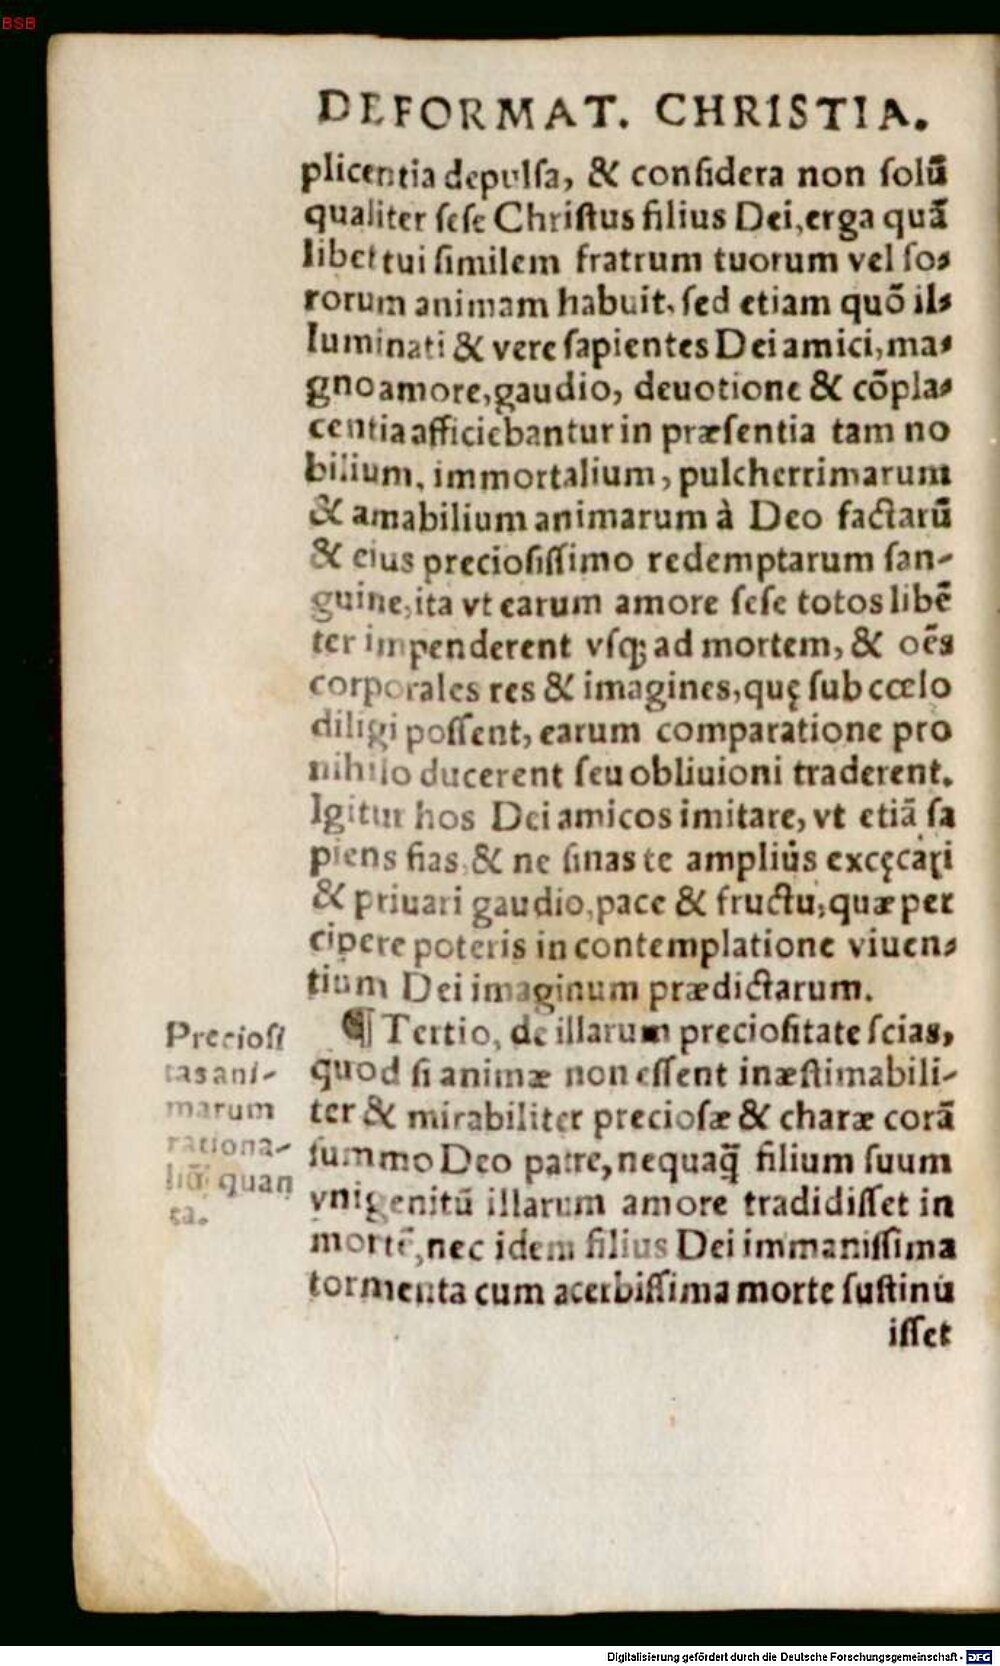 BSB
DEFORMAT. CHRISTIA.
plicentia depulſa, & conſidera non ſolū
qualiter ſeſe Chriſtus filius Dei, erga quā
libet tui ſimilem fratrum tuorum vel ſo⸗
rorum animam habuit, ſed etiam quō il⸗
luminati & vere ſapientes Dei amici, ma⸗
gno amore, gaudio, deuotione & cōpla⸗
centia afficiebantur in præſentia tam no
bilium, immortalium, pulcherrimarum
& amabilium animarum à Deo factarū
& eius precioſiſſimo redemptarum ſan-
guine, ita vt earum amore ſeſe totos libē
ter impenderent vſq; ad mortem, & oēs
corporales res & imagines, quę ſub cœlo
diligi poſſent, earum comparatione pro
nihilo ducerent ſeu obliuioni traderent.
Igitur hos Dei amicos imitare, vt etiā ſa
piens fias, & ne ſinas te ampliùs excęcari
& priuari gaudio, pace & fructu, quæ per
cipere poteris in contemplatione viuen⸗
tium Dei imaginum prædictarum.
¶ Tertio, de illarum precioſitate ſcias,
quod ſi animæ non eſſent inæſtimabili-
ter & mirabiliter precioſæ & charæ corā
ſummo Deo patre, nequaq̃ filium ſuum
vnigenitū illarum amore tradidiſſet in
mortē, nec idem filius Dei immaniſſima
tormenta cum acerbiſſima morte ſuſtinu
iſſet
Precioſi
tas ani-
marum
rationa-
liū quan
ta.
Digitalisierung gefördert durch die Deutsche Forschungsgemeinschaft - DFG